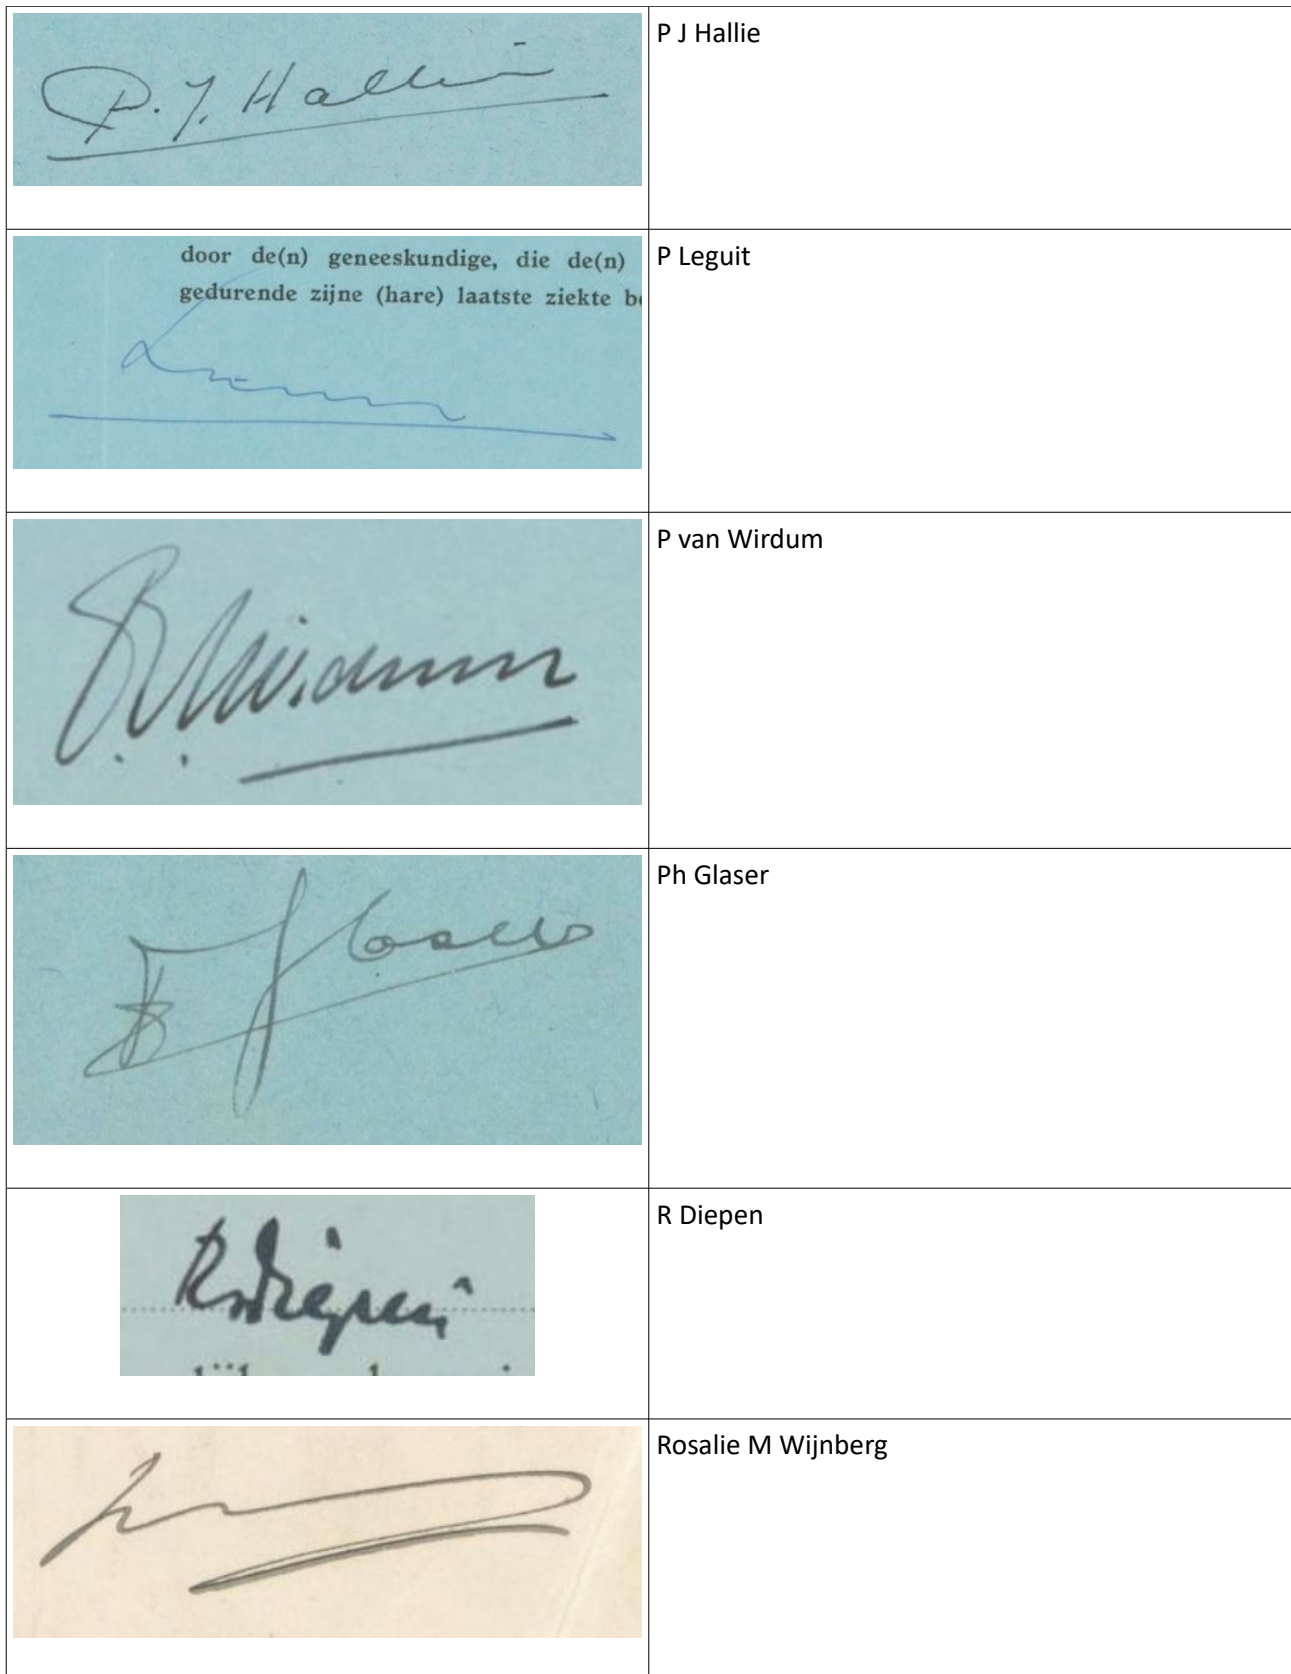 P. J. Hallie
P J Hallie
door de(n) geneeskundige, die de(n)
gedurende zijne (hare) laatste ziekte
P Leguit
P. v. Wirdum
P van Wirdum
Glaser
Ph Glaser
R Diepen
R Diepen
Rosalie M Wijnberg